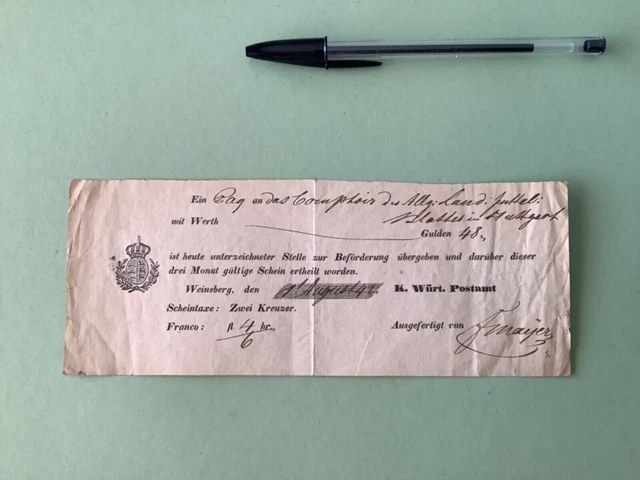 Ein Paq an das Comptoir des Allg: Land. Intell:
mit Werth Blattes in Stuttgart
Gulden 48.
ist heute unterzeichneter Stelle zur Beförderung übergeben und darüber dieser
drei Monat gültige Schein ertheilt worden.
Weinsberg, den August 42. K. Würt. Postamt
Scheintaxe: Zwei Kreuzer.
Franco: fl 4 kr.
6
Ausgefertigt von Mayer